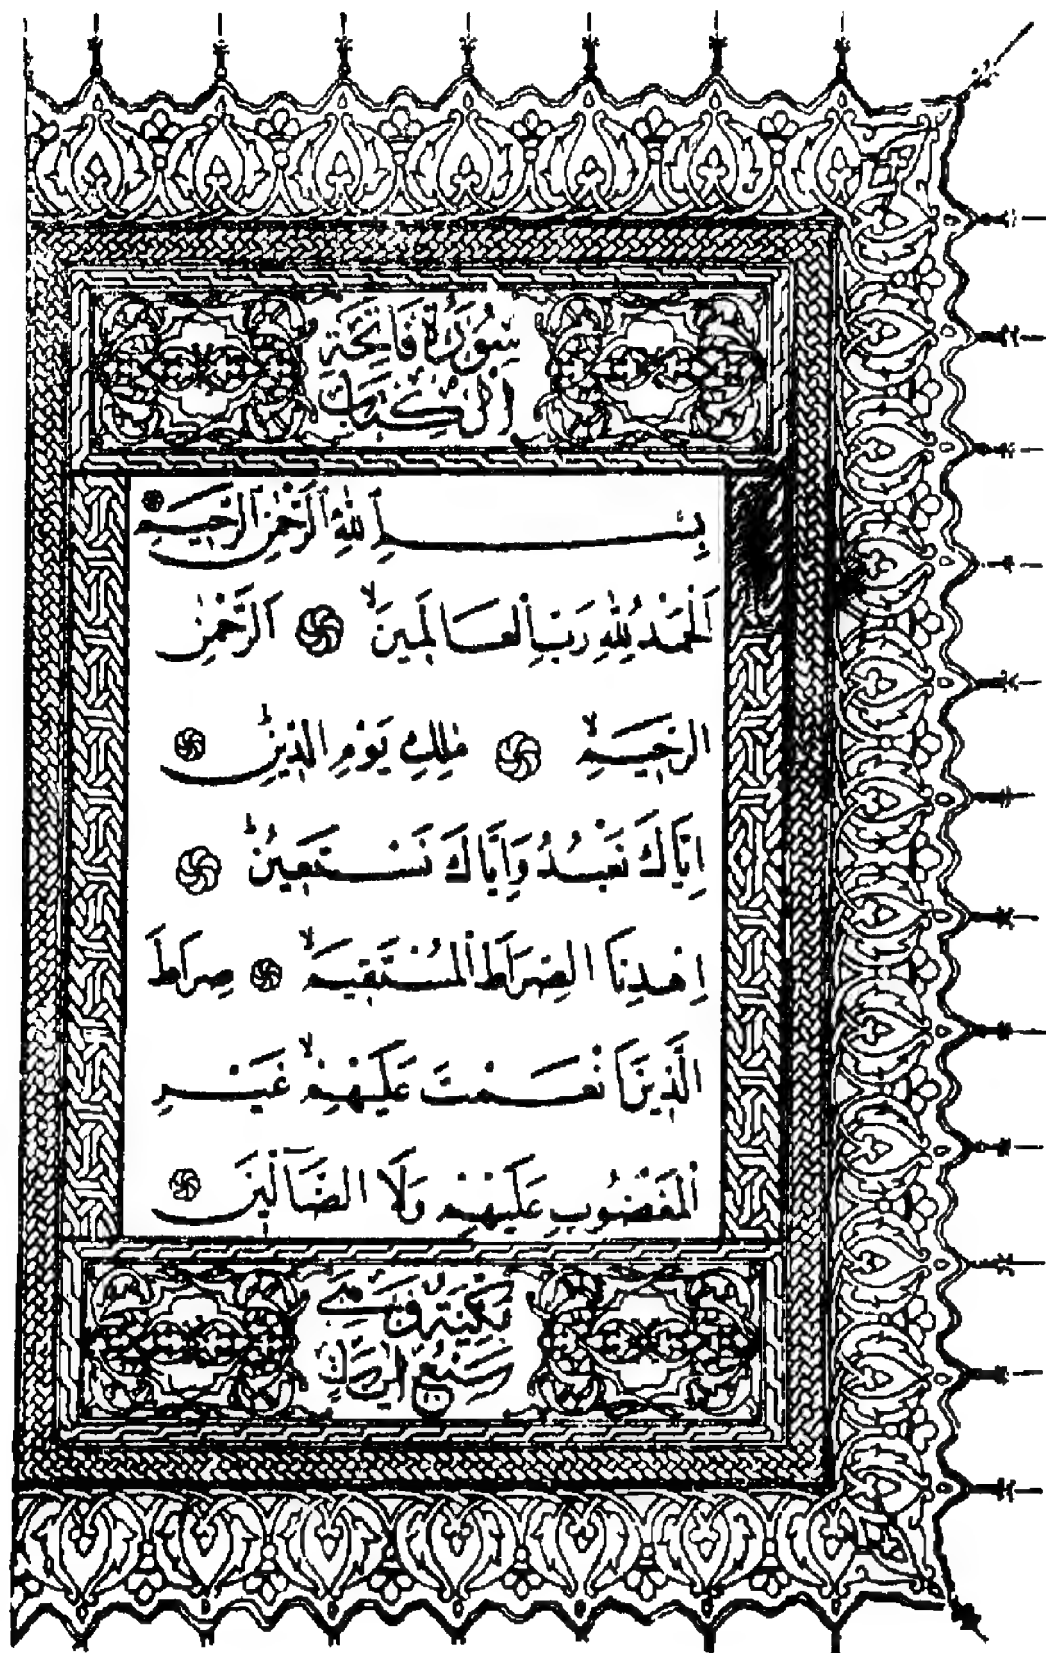 سُورَةُ فَاتِحَةِ
الْكِتَابِ
بِسْــــمِ اللّٰهِ الرَّحْمٰنِ الرَّحِيمِ
اَلْحَمْدُ لِلّٰهِ رَبِّ الْعَالَمِينَۙ اَلرَّحْمٰنِ
الرَّحِيمِۙ مٰلِكِ يَوْمِ الدِّينِۜ
اِيَّاكَ نَعْبُدُ وَاِيَّاكَ نَسْتَعِينُۜ
اِهْدِنَا الصِّرَاطَ الْمُسْتَقِيمَۙ صِرَاطَ
الَّذِينَ اَنْعَمْتَ عَلَيْهِمْۙ غَيْرِ
الْمَغْضُوبِ عَلَيْهِمْ وَلَا الضَّٓالِّينَ
مَكِّيَّةٌ وَهِيَ
سَبْعُ اٰيَاتٍ